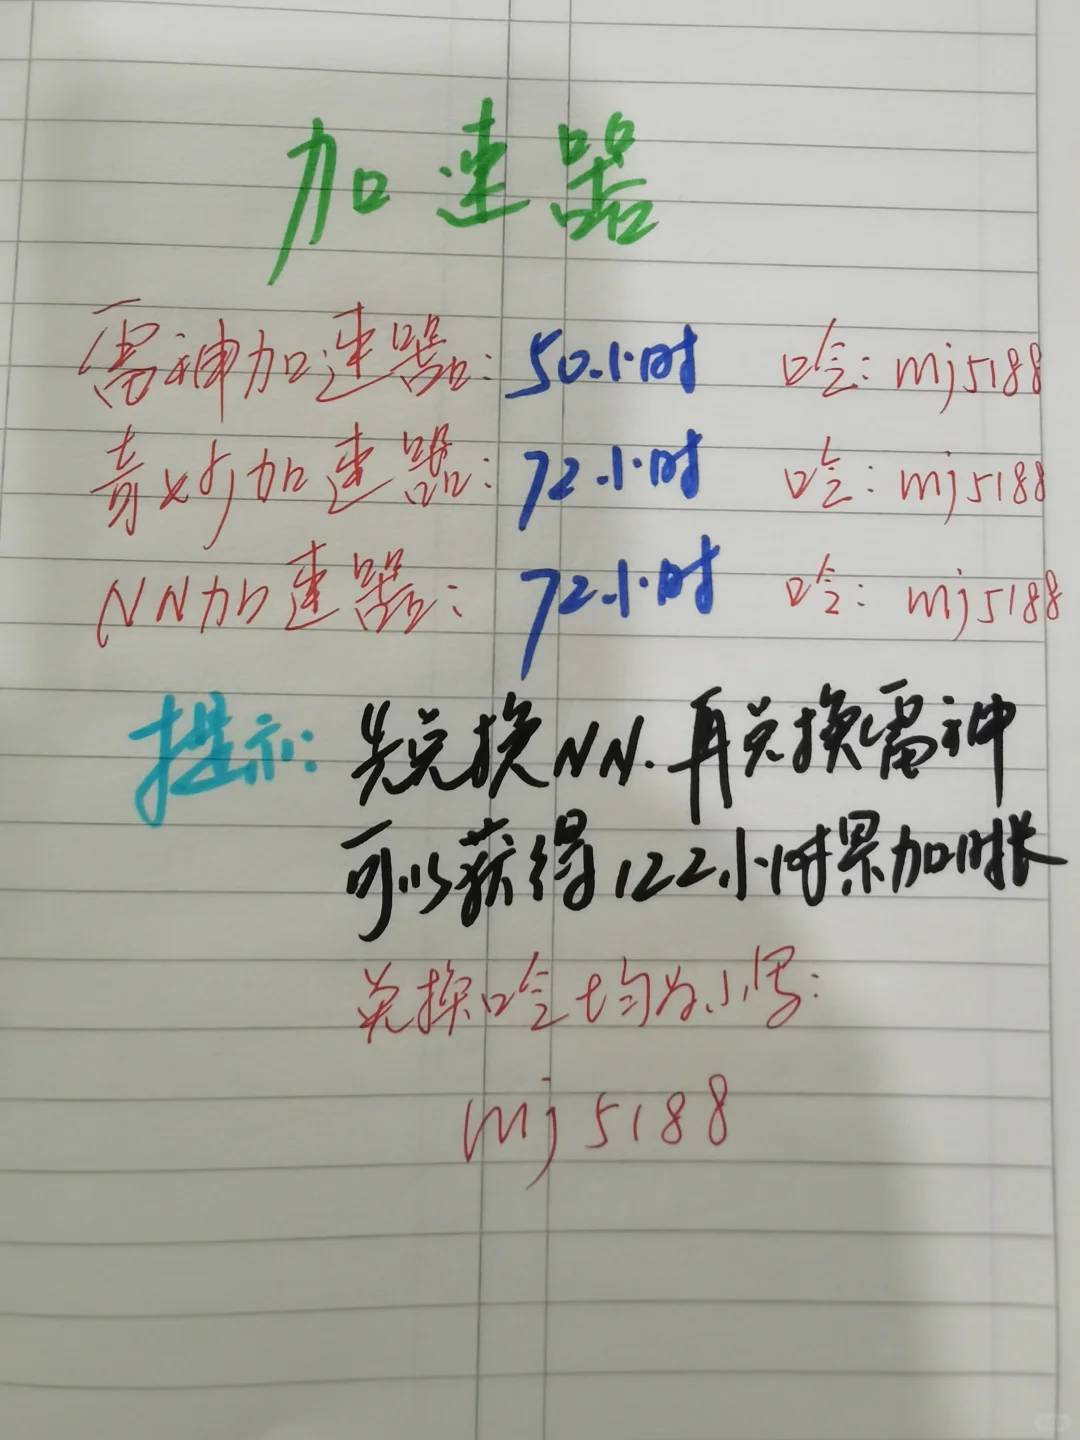 加速器
雷神加速器: 50小时 口令: mj5188
奇妙加速器: 72小时 口令: mj5188
NN加速器: 72小时 口令: mj5188
提示: 先兑换NN.再兑换雷神
可以获得122小时累加时长
兑换口令均为小写:
mj5188